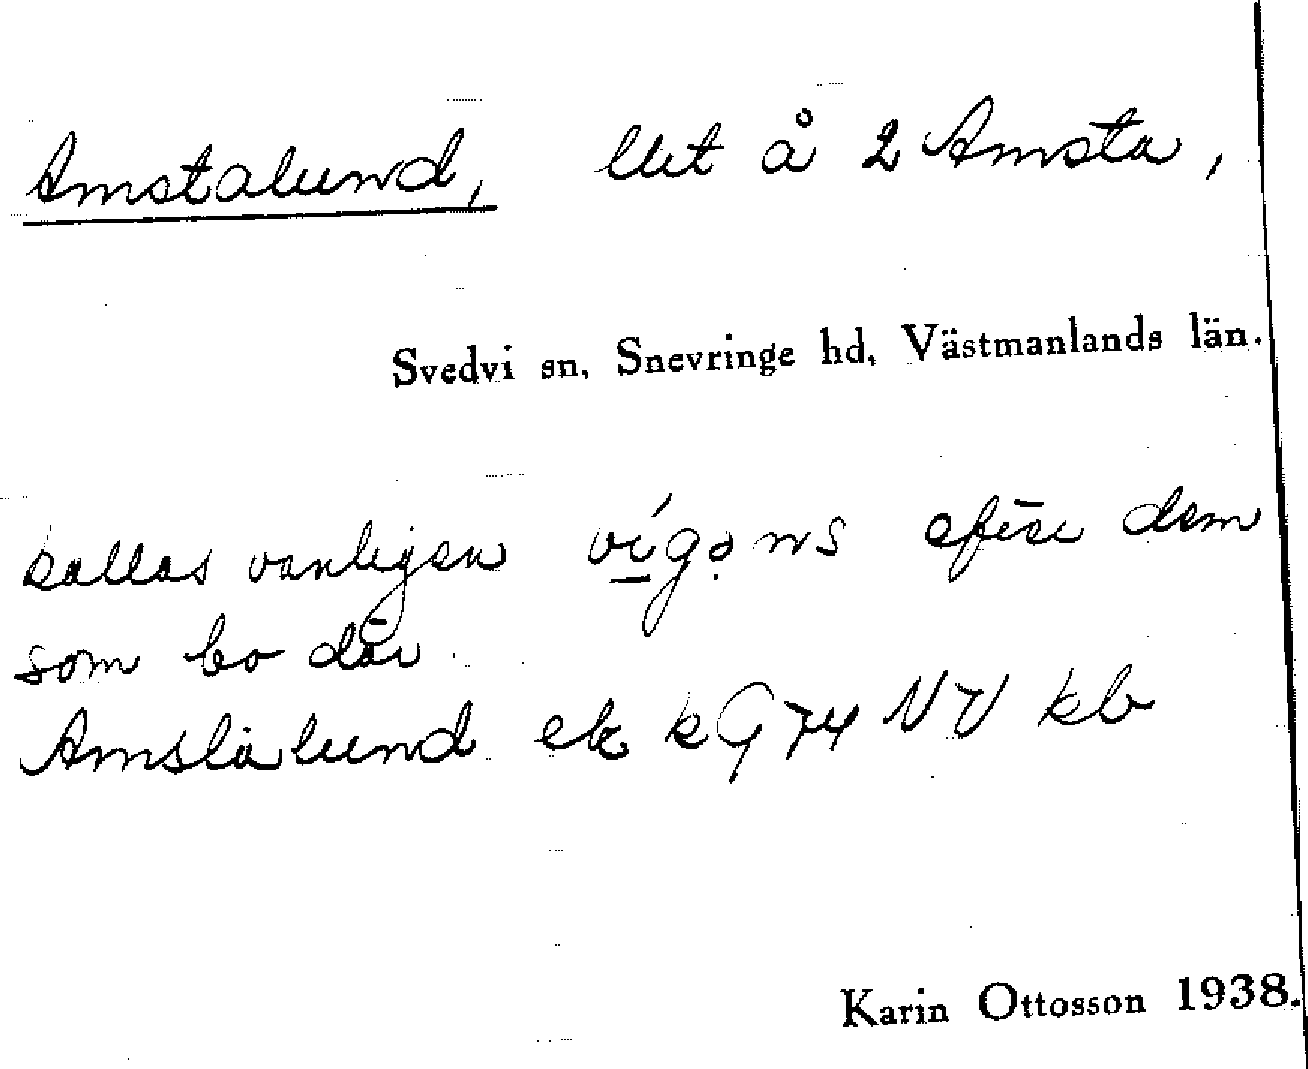 Amstalund, llet å 2 Amsta,
Svedvi sn, Snevringe hd, Västmanlands län.
kallas vanligen efter dem
som bo där.
Amstalund ek kG74 NV kb
Karin Ottosson 1938.